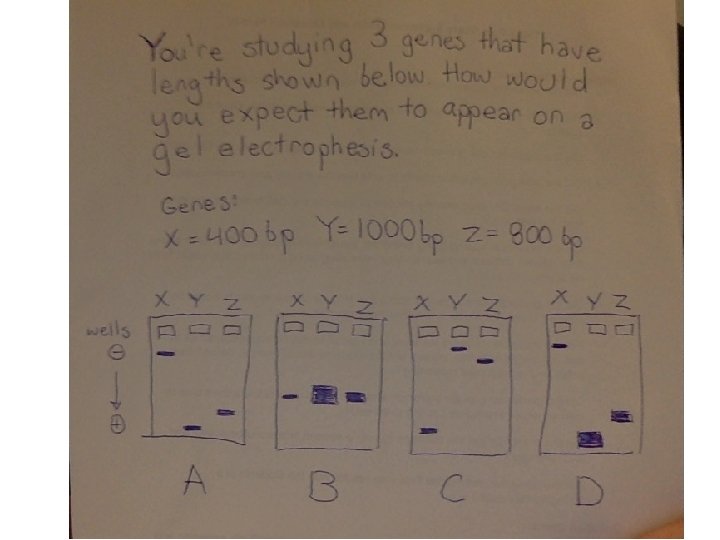 You're studying 3 genes that have
lengths shown below. How would
you expect them to appear on a
gel electrophesis.
Genes:
X = 400 bp Y = 1000 bp Z = 800 bp
X Y Z X Y Z X Y Z X Y Z
wells
⊖
⊕
A B C D